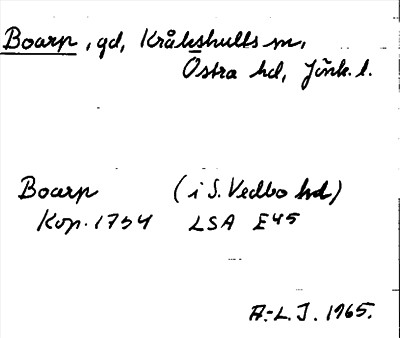 Boarp, gd, Kråkshults sn,
Östra hd, Jönk. l.
Boarp (i S. Vedbo hd)
Kop. 1754 LSA E45
A.-L. J. 1965.